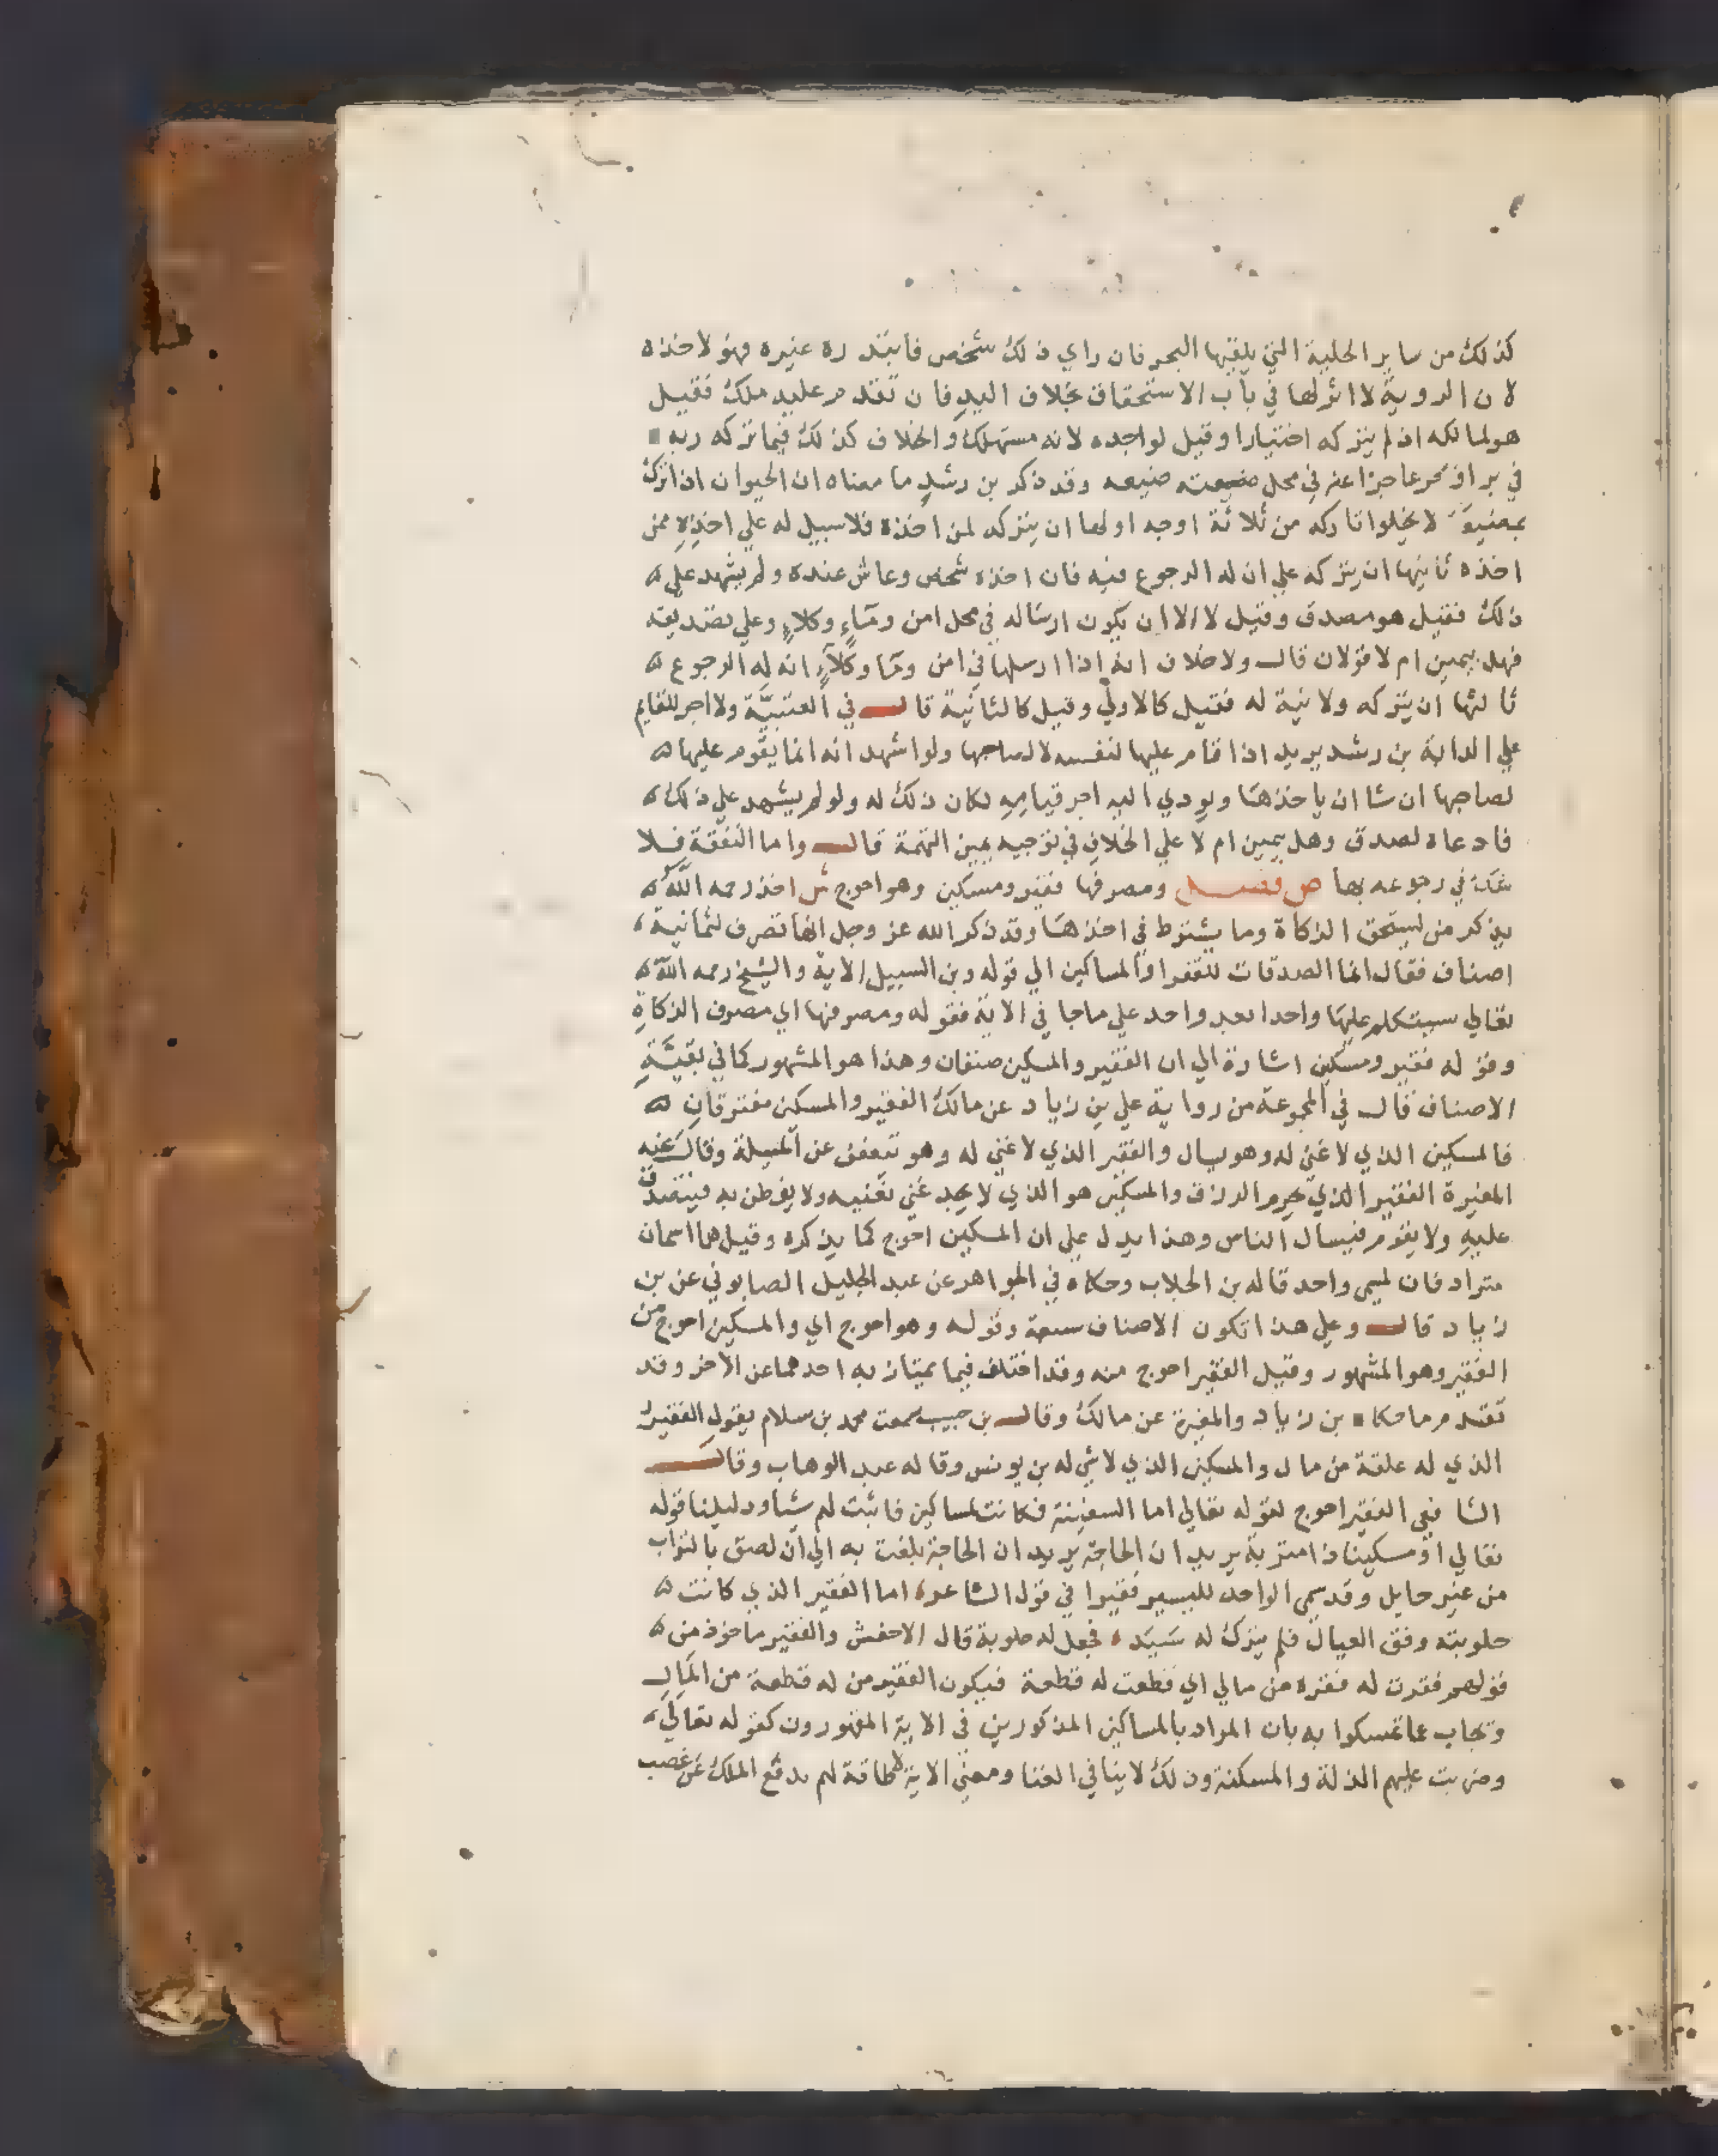 كذلك من ساير الحلية التي يلقيها البحر فان راي ذلك شخص فابتدره غيره فهو لاخذه
لان الروية لا اثر لها في باب الاستحقاق بخلاف اليد فان تقدم عليه ملك فقيل
هو لمالكه ان لم يتركه اختيارا وقيل لواجده لانه مستهلك والخلاف كذلك فيما تركه ربه
في بر او بحر عاجزا عنه في محل ضيعته ضيعه وقد ذكر بن رشد ما معناه ان الحيوان اذا ترك
بمضيعة لا يخلوا تاركه من ثلاثة اوجه اولها ان يتركه لمن اخذه فلا سبيل له علي اخذه ممن
اخذه ثانيها ان يتركه علي ان له الرجوع فيه فان اخذه شخص وعاش عنده ولم يشهد علي
ذلك فقيل هو مصدق وقيل لا الا ان يكون ارساله في محل امن وماء وكلاء وعلي تصديقه
فهل بيمين ام لا قولان قال ولا خلاف انه اذا ارسلها في امن وما وكلاء انه له الرجوع
ثالثها ان يتركه ولا نية له فقيل كالاولي وقيل كالثانية قال في العتبية ولا اجر للقايم
علي الدابة بن رشد يريد اذا قام عليها لنفسه لا لصاحبها ولو اشهد انه انما يقوم عليها
لصاحبها ان شا ان ياخذها ويودي اليه اجر قيامه لكان ذلك له ولو لم يشهد علي ذلك
فادعاه لصدق وهل بيمين ام لا علي الخلاف في توجيه يمين التهمة قال واما النفقة فلا
شك في رجوعه بها ص فصل ومصرفها فقير ومسكين وهو احوج ش اخذ رحمه الله
يذكر من يستحق الزكاة وما يشترط في اخذها وقد ذكر الله عز وجل انها تصرف لثمانية
اصناف فقال انما الصدقات للفقرا والمساكين الي قوله وبن السبيل الاية والشيخ رحمه الله
تعالي سيتكلم عليها واحدا بعد واحد علي ما جا في الاية فقوله ومصرفها اي مصرف الزكاة
وقوله فقير ومسكين اشارة الي ان الفقير والمسكين صنفان وهذا هو المشهور كما في بقية
الاصناف قال في المجموعة من رواية علي بن زياد عن مالك الفقير والمسكين مفترقان
فالمسكين الذي لا غني له وهو يسال والفقير الذي لا غني له وهو يتعفف عن المسلة وقال عنه
المغيرة الفقير الذي يحرم الرزق والمسكين هو الذي لا يجد غني يغنيه ولا يفطن به فيتصدق
عليه ولا يقوم فيسال الناس وهذا يدل علي ان المسكين احوج كما يذكره وقيل هما اسمان
مترادفان لمسمي واحد قاله بن الجلاب وحكاه في الجواهر عن عبد الجليل الصابوني عن بن
زياد قال وعلي هذا تكون الاصناف سبعة وقوله وهو احوج اي والمسكين احوج من
الفقير وهو المشهور وقيل الفقير احوج منه وقد اختلف فيما يمتاز به احدهما عن الاخر وقد
تقدم ما حكاه بن زياد والمغيرة عن مالك وقال بن حبيب سمعت محمد بن سلام يقول الفقير
الذي له علقة من مال والمسكين الذي لا شي له بن يونس وقاله عبد الوهاب وقال
الشافعي الفقير احوج لقوله تعالي اما السفينة فكانت لمساكين فاثبت لهم شيا ودليلنا قوله
تعالي او مسكينا ذا متربة يريد ان الحاجة يريد ان الحاجة بلغت به الي ان لصق بالتراب
من غير حايل وقد سمي الواحد لليسير فقيرا في قول الشاعر اما الفقير الذي كانت
حلوبته وفق العيال فلم يترك له سبد فجعل له حلوبة قال الاخفش والفقير ماخوذ من
قولهم فقرت له فقرة من مالي اي قطعت له قطعة فيكون الفقير من له قطعة من المال
ويجاب عما تمسكوا به بان المراد بالمساكين المذكورين في الاية المقهورون كقوله تعالي
وضربت عليهم الذلة والمسكنة وذلك لا ينافي الغنا ومعني الاية لا طاقة لهم بدفع الملك عن غصب